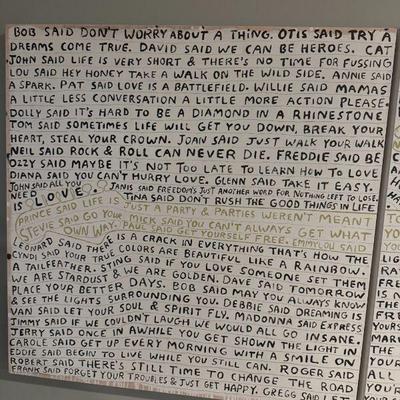 BOB SAID DON'T WORRY ABOUT A THING. OTIS SAID TRY A
DREAMS COME TRUE. DAVID SAID WE CAN BE HEROES. CAT
JOHN SAID LIFE IS VERY SHORT & THERE'S NO TIME FOR FUSSING
LOU SAID HEY HONEY TAKE A WALK ON THE WILD SIDE. ANNIE SAID
A SPARK. PAT SAID LOVE IS A BATTLEFIELD. WILLIE SAID MAMAS
A LITTLE LESS CONVERSATION A LITTLE MORE ACTION PLEASE.
DOLLY SAID IT'S HARD TO BE A DIAMOND IN A RHINESTONE
TOM SAID SOMETIMES LIFE WILL GET YOU DOWN, BREAK YOUR
HEART, STEAL YOUR CROWN. JOAN SAID JUST WALK YOUR WALK
NEIL SAID ROCK & ROLL CAN NEVER DIE. FREDDIE SAID BE
OZZY SAID MAYBE IT'S NOT TOO LATE TO LEARN HOW TO LOVE
DIANA SAID YOU CAN'T HURRY LOVE. GLENN SAID TAKE IT EASY.
JOHN SAID ALL YOU NEED IS LOVE. JANIS SAID FREEDOM'S JUST ANOTHER WORD FOR NOTHING LEFT TO LOSE.
TINA SAID DON'T RUSH THE GOOD THINGS IN LIFE
PRINCE SAID LIFE IS JUST A PARTY & PARTIES WEREN'T MEANT
STEVIE SAID GO YOUR OWN WAY. MICK SAID YOU CAN'T ALWAYS GET WHAT
PAUL SAID GET YOURSELF FREE. EMMYLOU SAID
LEONARD SAID THERE IS A CRACK IN EVERYTHING THAT'S HOW THE
CYNDI SAID YOUR TRUE COLORS ARE BEAUTIFUL LIKE A RAINBOW.
A TAILFEATHER. STING SAID IF YOU LOVE SOMEONE SET THEM
WE ARE STARDUST & WE ARE GOLDEN. DAVE SAID TOMORROW
PLACE YOUR BETTER DAYS. BOB SAID MAY YOU ALWAYS KNOW
& SEE THE LIGHTS SURROUNDING YOU. DEBBIE SAID DREAMING IS
VAN SAID LET YOUR SOUL & SPIRIT FLY. MADONNA SAID EXPRESS
JIMMY SAID IF WE COULDN'T LAUGH WE WOULD ALL GO INSANE.
JERRY SAID ONCE IN AWHILE YOU GET SHOWN THE LIGHT IN
CAROLE SAID GET UP EVERY MORNING WITH A SMILE ON
EDDIE SAID BEGIN TO LIVE WHILE YOU STILL CAN. ROGER SAID
ROBERT SAID THERE'S STILL TIME TO CHANGE THE ROAD
FRANK SAID FORGET YOUR TROUBLES & JUST GET HAPPY. GREGG SAID LET